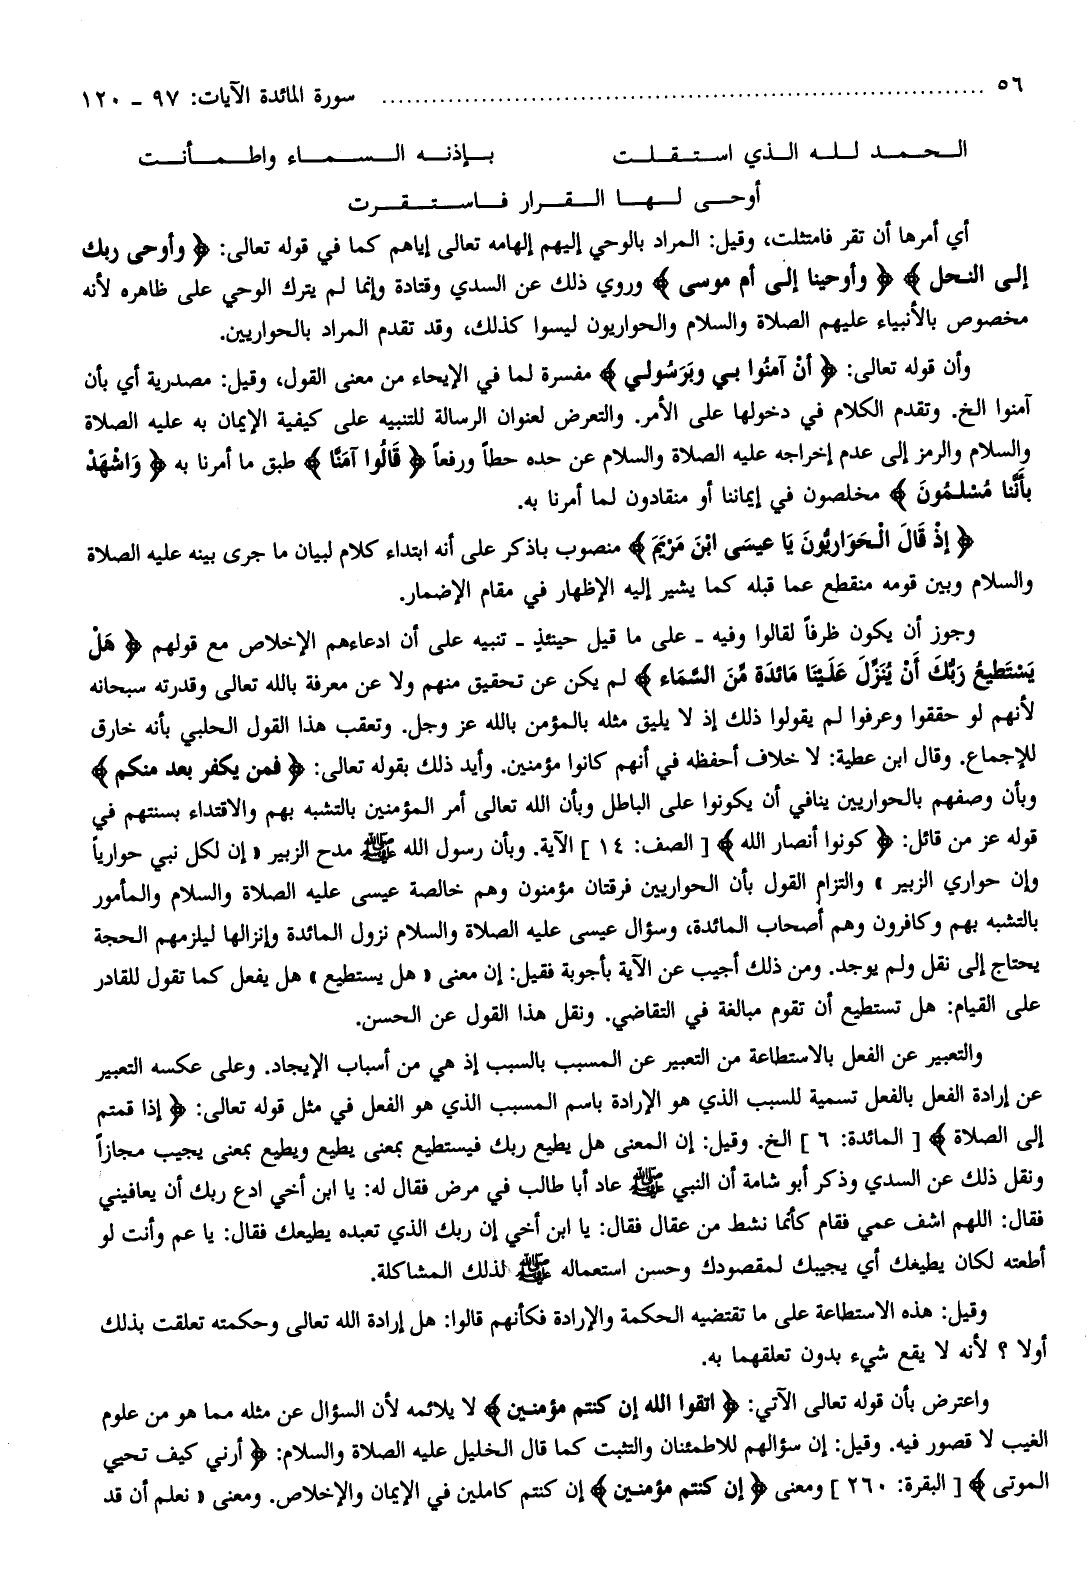 ٥٦ ........................................................................ سورة المائدة الآيات: ٩٧ ـ ١٢٠
الحمد لله الذي استقلت بإذنه السماء واطمأنت
أوحى لها القرار فاستقرت
أي أمرها أن تقر فامتثلت، وقيل: المراد بالوحي إليهم إلهامه تعالى إياهم كما في قوله تعالى: ﴿ وأوحى ربك
إلى النحل ﴾ ﴿ وأوحينا إلى أم موسى ﴾ وروي ذلك عن السدي وقتادة وإنما لم يترك الوحي على ظاهره لأنه
مخصوص بالأنبياء عليهم الصلاة والسلام والحواريون ليسوا كذلك، وقد تقدم المراد بالحواريين.
وأن قوله تعالى: ﴿ أنْ آمنُوا بي وبرَسُولي ﴾ مفسرة لما في الإيحاء من معنى القول، وقيل: مصدرية أي بأن
آمنوا الخ. وتقدم الكلام في دخولها على الأمر. والتعرض لعنوان الرسالة للتنبيه على كيفية الإيمان به عليه الصلاة
والسلام والرمز إلى عدم إخراجه عليه الصلاة والسلام عن حده حطاً ورفعاً ﴿ قَالُوا آمَنَّا ﴾ طبق ما أمرنا به ﴿ وَاشْهَدْ
بأَنَّنا مُسْلمُونَ ﴾ مخلصون في إيماننا أو منقادون لما أمرنا به.
﴿ إذْ قَالَ الْحَوَاريُّونَ يَا عيسَى ابْنَ مَرْيَمَ ﴾ منصوب باذكر على أنه ابتداء كلام لبيان ما جرى بينه عليه الصلاة
والسلام وبين قومه منقطع عما قبله كما يشير إليه الإظهار في مقام الإضمار.
وجوز أن يكون ظرفاً لقالوا وفيه ـ على ما قيل حينئذٍ ـ تنبيه على أن ادعاءهم الإخلاص مع قولهم ﴿ هَلْ
يَسْتَطيعُ رَبُّكَ أَنْ يُنَزِّلَ عَلَيْنَا مَائدَة مِّنَ السَّمَاء ﴾ لم يكن عن تحقيق منهم ولا عن معرفة بالله تعالى وقدرته سبحانه
لأنهم لو حققوا وعرفوا لم يقولوا ذلك إذ لا يليق مثله بالمؤمن بالله عز وجل. وتعقب هذا القول الحلبي بأنه خارق
للإجماع. وقال ابن عطية: لا خلاف أحفظه في أنهم كانوا مؤمنين. وأيد ذلك بقوله تعالى: ﴿ فمن يكفر بعد منكم ﴾
وبأن وصفهم بالحواريين ينافي أن يكونوا على الباطل وبأن الله تعالى أمر المؤمنين بالتشبه بهم والاقتداء بسنتهم في
قوله عز من قائل: ﴿ كونوا أنصار الله ﴾ [ الصف: ١٤ ] الآية. وبأن رسول الله ﷺ مدح الزبير « إن لكل نبي حوارياً
وإن حواري الزبير » والتزام القول بأن الحواريين فرقتان مؤمنون وهم خالصة عيسى عليه الصلاة والسلام والمأمور
بالتشبه بهم وكافرون وهم أصحاب المائدة، وسؤال عيسى عليه الصلاة والسلام نزول المائدة وإنزالها ليلزمهم الحجة
يحتاج إلى نقل ولم يوجد. ومن ذلك أجيب عن الآية بأجوبة فقيل: إن معنى « هل يستطيع » هل يفعل كما تقول للقادر
على القيام: هل تستطيع أن تقوم مبالغة في التقاضي. ونقل هذا القول عن الحسن.
والتعبير عن الفعل بالاستطاعة من التعبير عن المسبب بالسبب إذ هي من أسباب الإيجاد. وعلى عكسه التعبير
عن إرادة الفعل بالفعل تسمية للسبب الذي هو الإرادة باسم المسبب الذي هو الفعل في مثل قوله تعالى: ﴿ إذا قمتم
إلى الصلاة ﴾ [ المائدة: ٦ ] الخ. وقيل: إن المعنى هل يطيع ربك فيستطيع بمعنى يطيع ويطيع بمعنى يجيب مجازاً
ونقل ذلك عن السدي وذكر أبو شامة أن النبي ﷺ عاد أبا طالب في مرض فقال له: يا ابن أخي ادع ربك أن يعافيني
فقال: اللهم اشف عمي فقام كأنما نشط من عقال فقال: يا ابن أخي إن ربك الذي تعبده يطيعك فقال: يا عم وأنت لو
أطعته لكان يطيغك أي يجيبك لمقصودك وحسن استعماله ﷺ لذلك المشاكلة.
وقيل: هذه الاستطاعة على ما تقتضيه الحكمة والإرادة فكأنهم قالوا: هل إرادة الله تعالى وحكمته تعلقت بذلك
أولا ؟ لأنه لا يقع شيء بدون تعلقهما به.
واعترض بأن قوله تعالى الآتي: ﴿ اتقوا الله إن كنتم مؤمنين ﴾ لا يلائمه لأن السؤال عن مثله مما هو من علوم
الغيب لا قصور فيه. وقيل: إن سؤالهم للاطمئنان والتثبت كما قال الخليل عليه الصلاة والسلام: ﴿ أرني كيف تحيي
الموتى ﴾ [ البقرة: ٢٦٠ ] ومعنى ﴿ إن كنتم مؤمنين ﴾ إن كنتم كاملين في الإيمان والإخلاص. ومعنى « نعلم أن قد